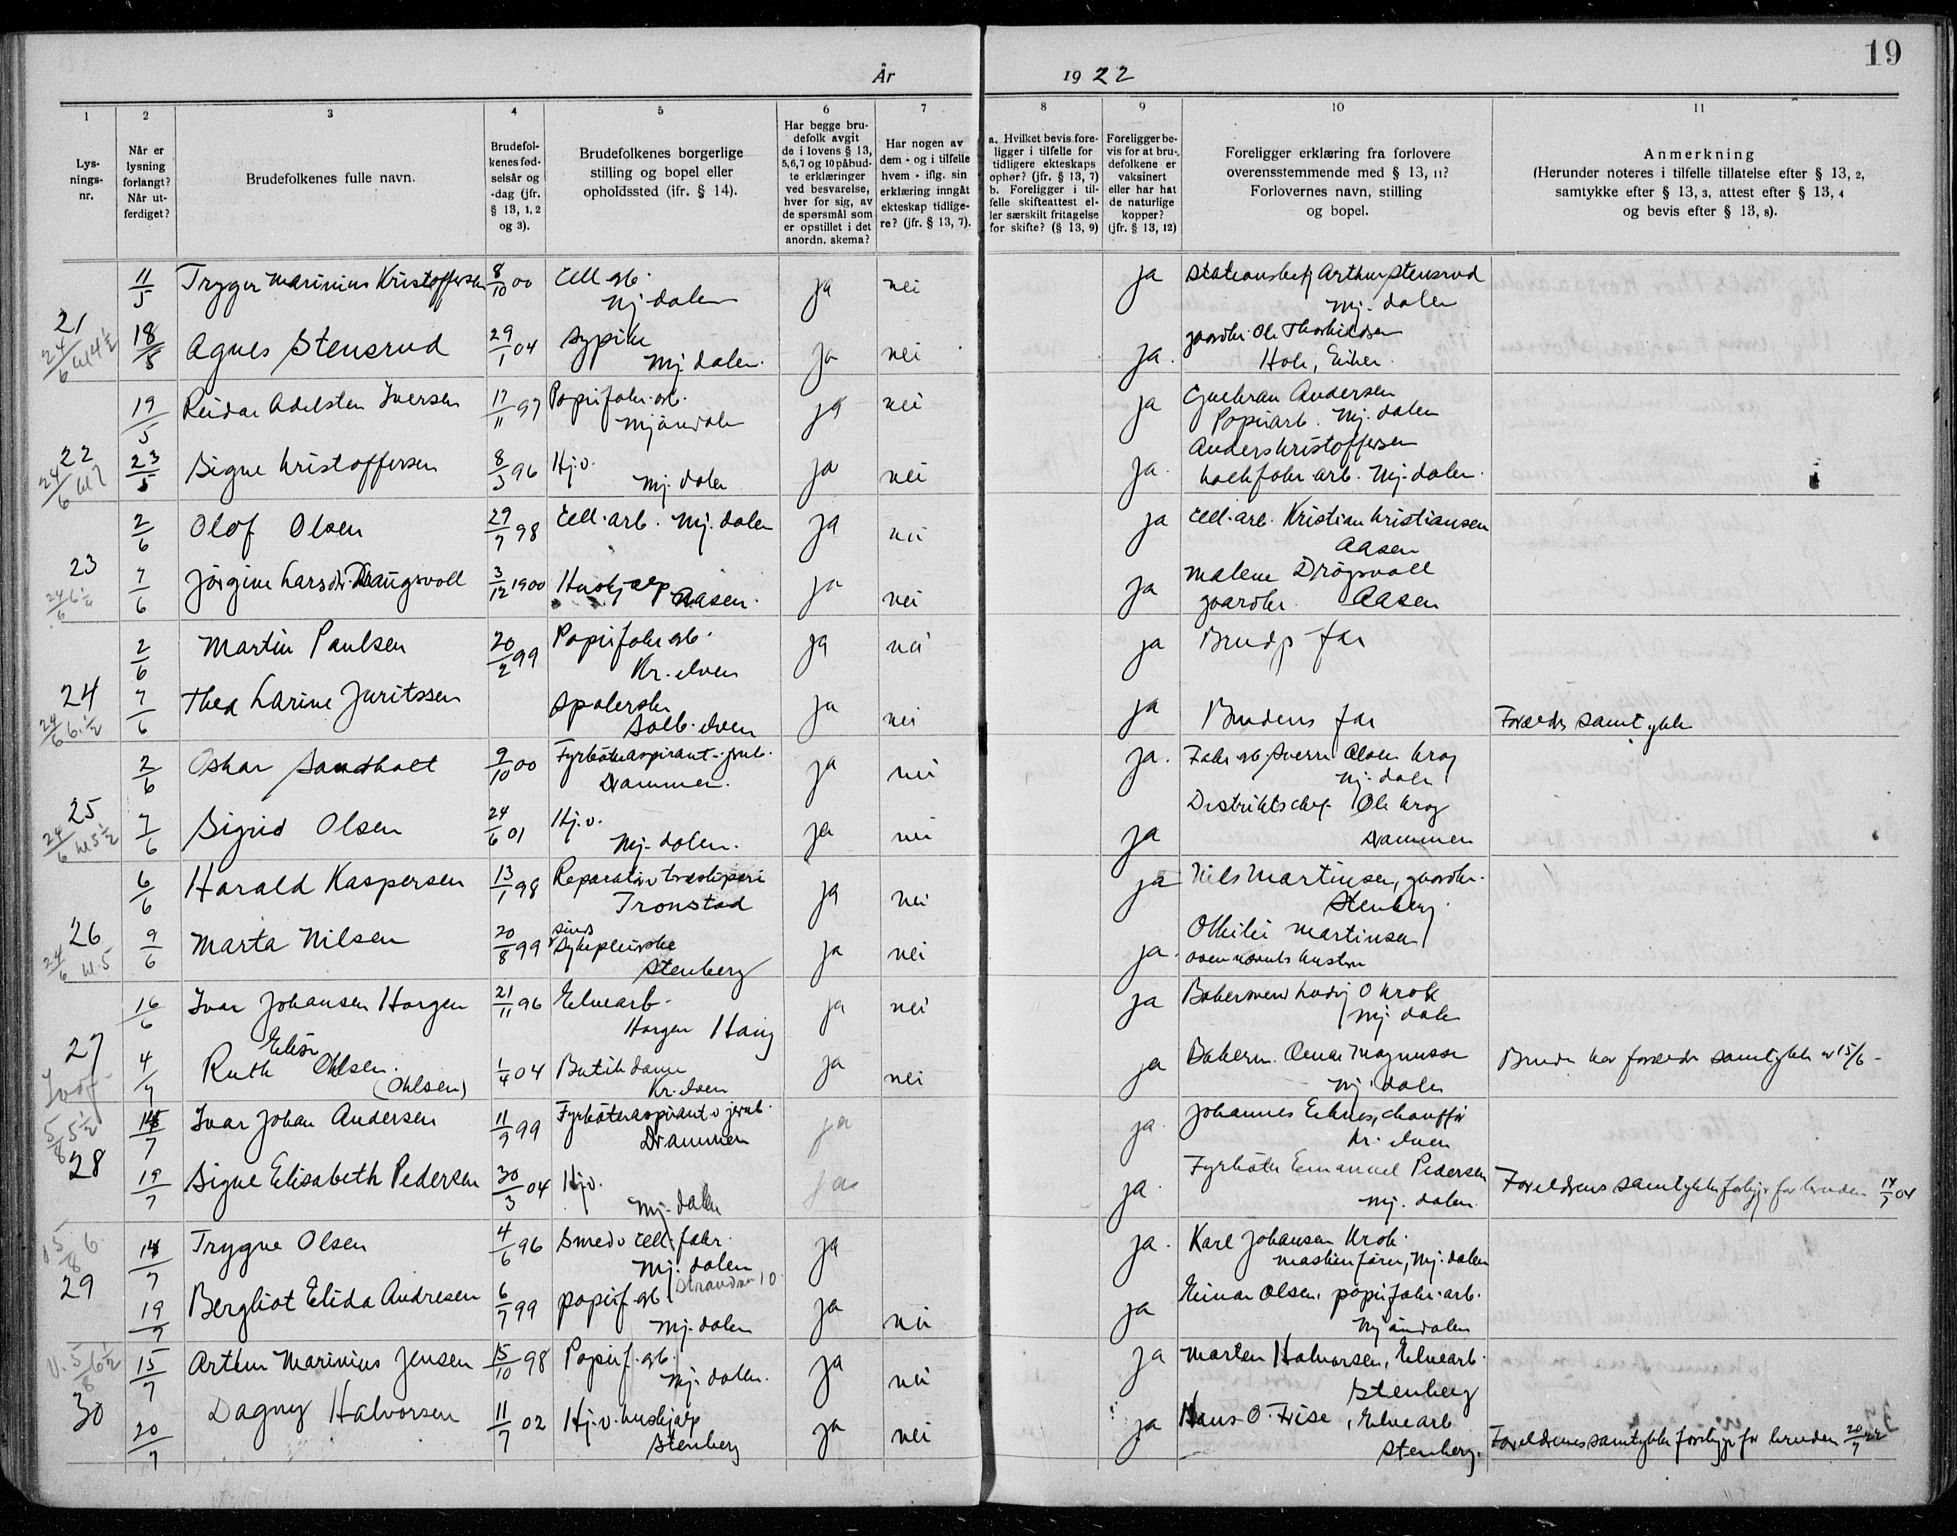 19
År 1922
1 2 3 4 5 6 7 8 9 10 11
Lys-
nings-
nr.
Når er
lysning
forlangt?
Når ut-
ferdiget?
Brudefolkenes fulle navn.
Brudefol-
kenes fød-
selsår og
-dag (jfr.
§ 13, 1, 2
og 3).
Brudefolkenes borgerlige
stilling og bopel eller
opholdssted (jfr. § 14).
Har begge bru-
defolk avgit
de i lovens § 13,
5,6,7 og 10 påbud-
te erklæringer
ved besvarelse,
hver for sig, av
de spørsmål som
er opstillet i det
anordn. skema?
Har nogen av
dem - og i tilfelle
hvem - iflg. sin
erklæring inngåt
ekteskap tidlige-
re? (jfr. § 13, 7).
a. Hvilket bevis fore-
ligger i tilfelle for
tidligere ekteskaps
ophør? (jfr. § 13, 7)
b. Foreligger i til-
felle skifteattest el-
ler særskilt fritagelse
for skifte? (§ 13, 9)
Foreligger be-
vis for at bru-
defolkene er
vaksinert
eller har hat
de naturlige
kopper?
(jfr. § 13, 12)
Foreligger erklæring fra forlovere
overensstemmende med § 13, 11?
Forlovernes navn, stilling
og bopel.
Anmerkning
(Herunder noteres i tilfelle tillatelse efter § 13, 2,
samtykke efter § 13, 3, attest efter § 13, 4
og bevis efter § 13, 8).
11/5 Marinius Kristoffersen 8/10 00 Cell. arb. Mj.dalen ja nei ja Arthur Stensrud Mj. dalen
21 18/5 Agnes Stensrud 29/1 04 Sypike Mj. dalen. ja nei ja. gaardbr. Ole Thorkildsen
24/6 kl 4½ Hole, Eiker.
19/5 Reidar Adelsten Iversen 17/11 97 Papirfabr. arb. Mjöndalen ja nei ja Andersen
Papirarb. Mj. dalen
22 23/5 Signe Kristoffersen 8/3 96 Hj.v. Mj. dalen ja nei ja. Anders Kristoffersen
24/6 kl 7 arb. Mj. dalen.
2/6 Olof Olsen 29/7 98 Cell. arb. Mj. dalen ja nei ja Cell. arb. Kristian Kristiansen
Aasen
23 7/6 Jörgine Larsdr. 3/12 1900 Hushjælp Aasen. ja nei ja Malene Drögsvoll
24/6 6½ gaardbr. Aasen
2/6 Martin Paulsen 20/2 99 Papirfabr. arb. Kr. elven ja nei ja Brudg. far
24 7/6 Thea Larine Juritssen Solb. elven ja nei ja Brudens far Foreldr. samtykke
24/6 6.½
2/6 Oskar Sandholt 9/10 00 Fyrböteraspirant jernb. Drammen. ja nei ja. Fabr. arb. Sverre Olsen Krog
Mj. dalen
25 7/6 Sigrid Olsen 24/6 01 Hj.v. Mj. dalen. ja nei ja Ole Krog
24/6 kl 5½ Drammen
6/6 Harald Kaspersen 13/1 98 Reparatör v træsliperi Tronstad ja nei ja Nils Martinsen, gaardbr.
Stenberg.
26 9/6 Marta Nilsen 20/8 99 Sykepleierske Stenberg ja nei ja. Othilie Martinsen
24/6 kl. 5 ovennævnts hustru
16/6 Ivar Johansen Horgen 21/11 96 Elvearb. Horgen Haug ja nei ja Bakersvend Ludvig O Krok
Mj. dalen
27 4/7 Ruth Elise Ohlsen. (Ohlsen) 1/4 04 Butikdame Kr. elven ja nei ja Bakerm. Magnussen
Mj. dalen
Bruden har foreldr. samtykke av 15/6 -
5/8 5½
7 Ivar Johan Andersen 11/9 99 Fyrböteraspirant v jernb. Drammen ja ja. Johannes Eknes, chauffør
Kr. elven
28 19/7 Signe Elisabeth Pedersen 30/3 04 Hj.v. Mj. dalen ja ja. Fyrböter Emanuel Pedersen
Mj. dalen.
Foreldrenes samtykke forligger for bruden
5/8 6.
14/7 Trygve Olsen 4/6 96 Smed v Cell. fabr. Mj. dalen ja ja. Karl Johansen Krok
maskinfører, Mj. dalen
29 19/7 Bergliot Elida Andresen 6/7 99 papirf. arb. Mj. dalen ja nei ja Einar Olsen, papirfabr. arb.
Mjöndalen
5/8 6½
15/7 Arthur Marinius Jensen 15/10 98 Papirf. arb. Mj. dalen. ja nei ja Marten Halvorsen, Elvearb.
Stenberg
30 20/7 Dagny Halvorsen 11/7 02 Hj.v. hushjælp Stenberg ja nei ja Hans O. Frise, Elvearb
Stenberg.
Foreldrenes samtykke foreligger for bruden 20/7 22